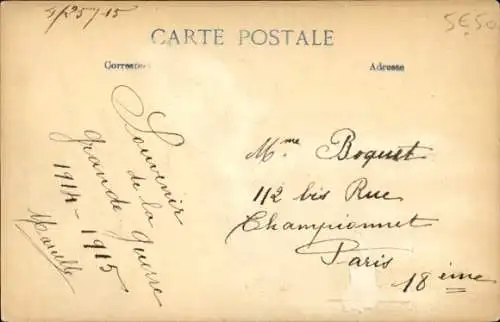 CARTE POSTALE
Corresp
Adresse
Souvenir
de la
grande guerre
1914-1915
Marcelle
Mme Boquet
112 bis Rue
Championnet
Paris
18ème
5E50